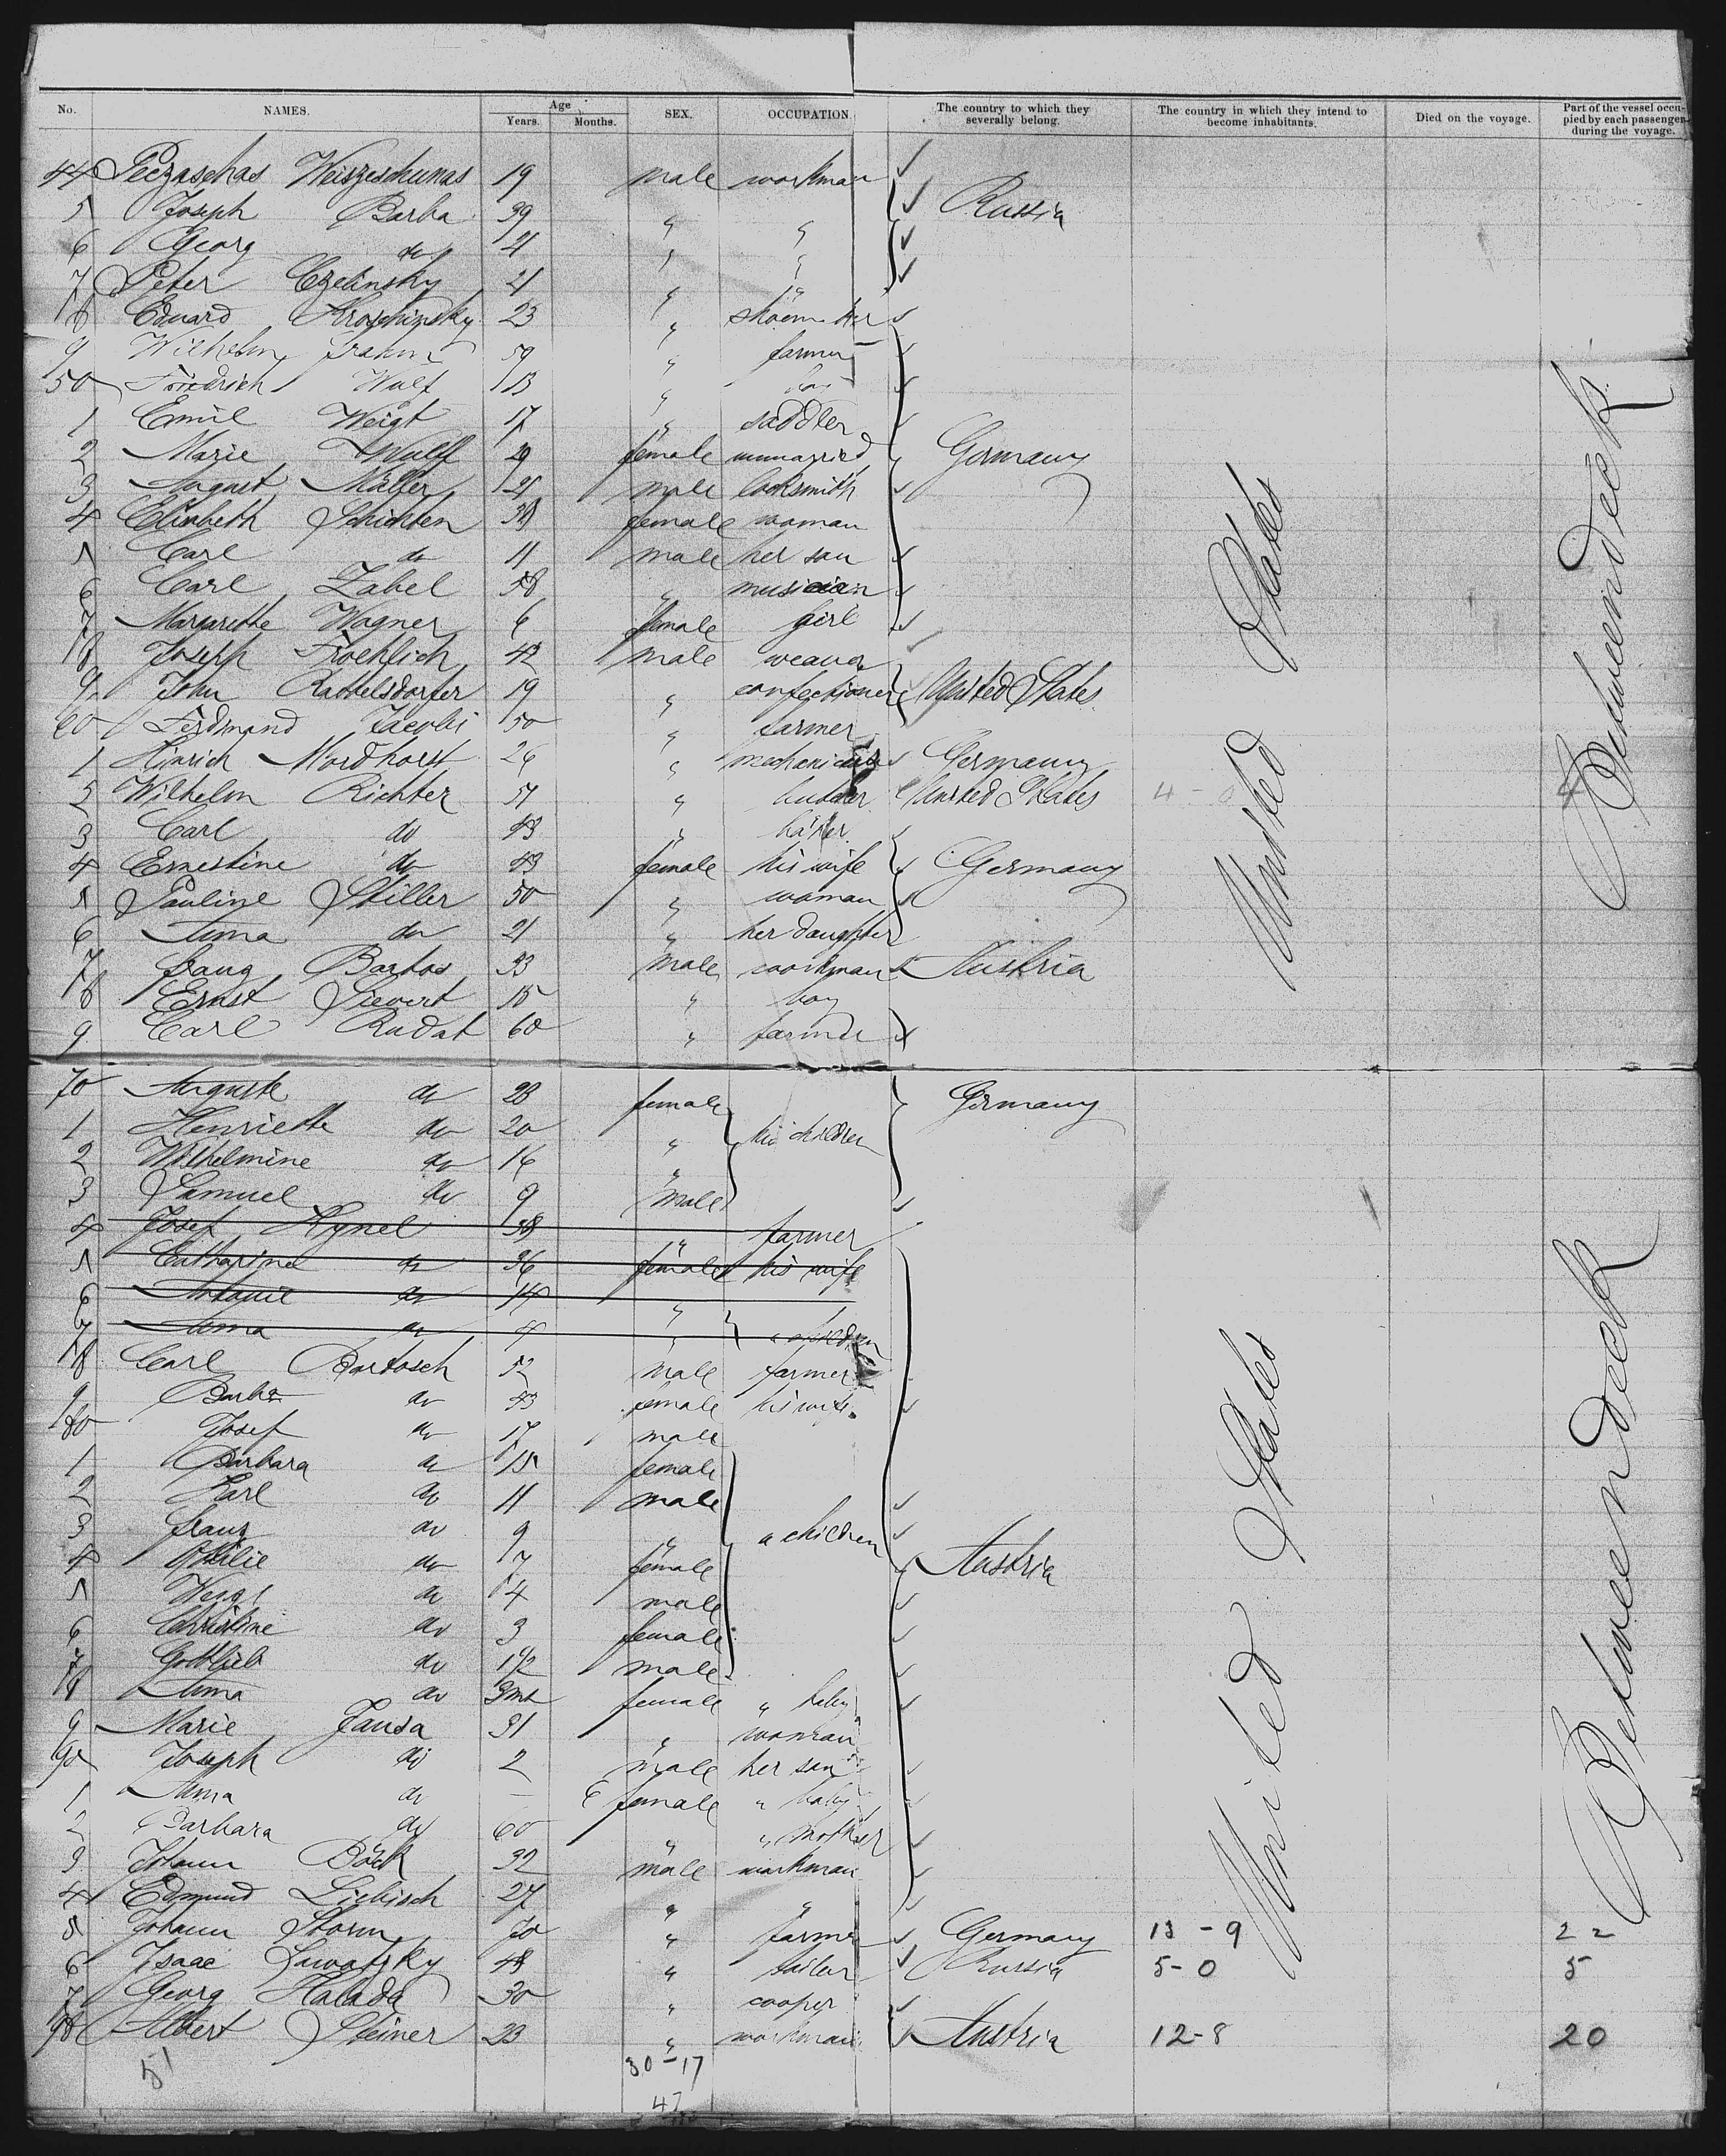 No. NAMES. Age Years. Months. SEX. OCCUPATION. The country to which they severally belong. The country in which they intend to become inhabitants. Died on the voyage. Part of the vessel occupied by each passenger during the voyage.
44 Weiszeschunas 19 male workman
5 Joseph Barba 39 " " Russia
6 Georg do 21 " "
7 Peter Czelinsky 21 " "
8 Eduard 23 " shoemaker
9 Wilhelm Frahm 59 " farmer
50 Friedrich Wulf 13 " boy
1 Emil Weigt 17 " saddler
2 Marie Wulff 29 female unmarried Germany
3 August Müller 21 male locksmith
4 Elisabeth Schichten 38 female woman
5 Carl do 11 male her son
6 Carl Zabel 58 " musician
7 Margarethe Wagner 6 female girl
8 Joseph Froehlich 42 male weaver
9 John Rattelsdorfer 19 " confectioner United States
60 Ferdinand Jacobi 50 " farmer
1 Hinrich Mordhorst 26 " mechanician Germany
2 Wilhelm Richter 51 " United States 4 - 0 4
3 Carl do 43 "
4 Ernestine do 43 female his wife Germany
5 Pauline Stiller 50 " woman
6 Anna do 21 " her daughter
7 Franz Bartos 33 male workman Austria
8 Ernst Sievert 15 " boy
9 Carl Rudat 60 " farmer
United States
Between deck
70 Auguste do 28 female Germany
1 Henriette do 20 " his children
2 Wilhelmine do 16 "
3 Samuel do 9 male
4 Josef Hynel 38 " farmer
5 Catharina do 36 female his wife
6 Antonie do 14 "
7 Anna do 4 " " children
8 Carl Bartosch 52 male farmer
9 Barba do 43 female his wife
80 Josef do 17 male
1 Barbara do 15 female
2 Karl do 11 male
3 Franz do 9 " " children
4 Ottilie do 7 female Austria
5 do 4 male
6 Christine do 3 female
7 Gottlieb do 1 1/2 male
8 Anna do 3 mt female " baby
9 Marie Jansa 31 " woman
90 Joseph do 2 male her son
1 Anna do - 6 female " baby
2 Barbara do 60 " " mother
3 Johann Böck 32 male workman
4 Edmund Liebisch 27 " "
5 Johann Storm 70 " farmer Germany 13 - 9 22
6 Isaac 48 " tailor Russia 5 - 0 5
7 Georg Halada 30 " cooper
98 Albert Steiner 23 " workman Austria 12 - 8 20
United States
Between deck
51 30 - 17
47